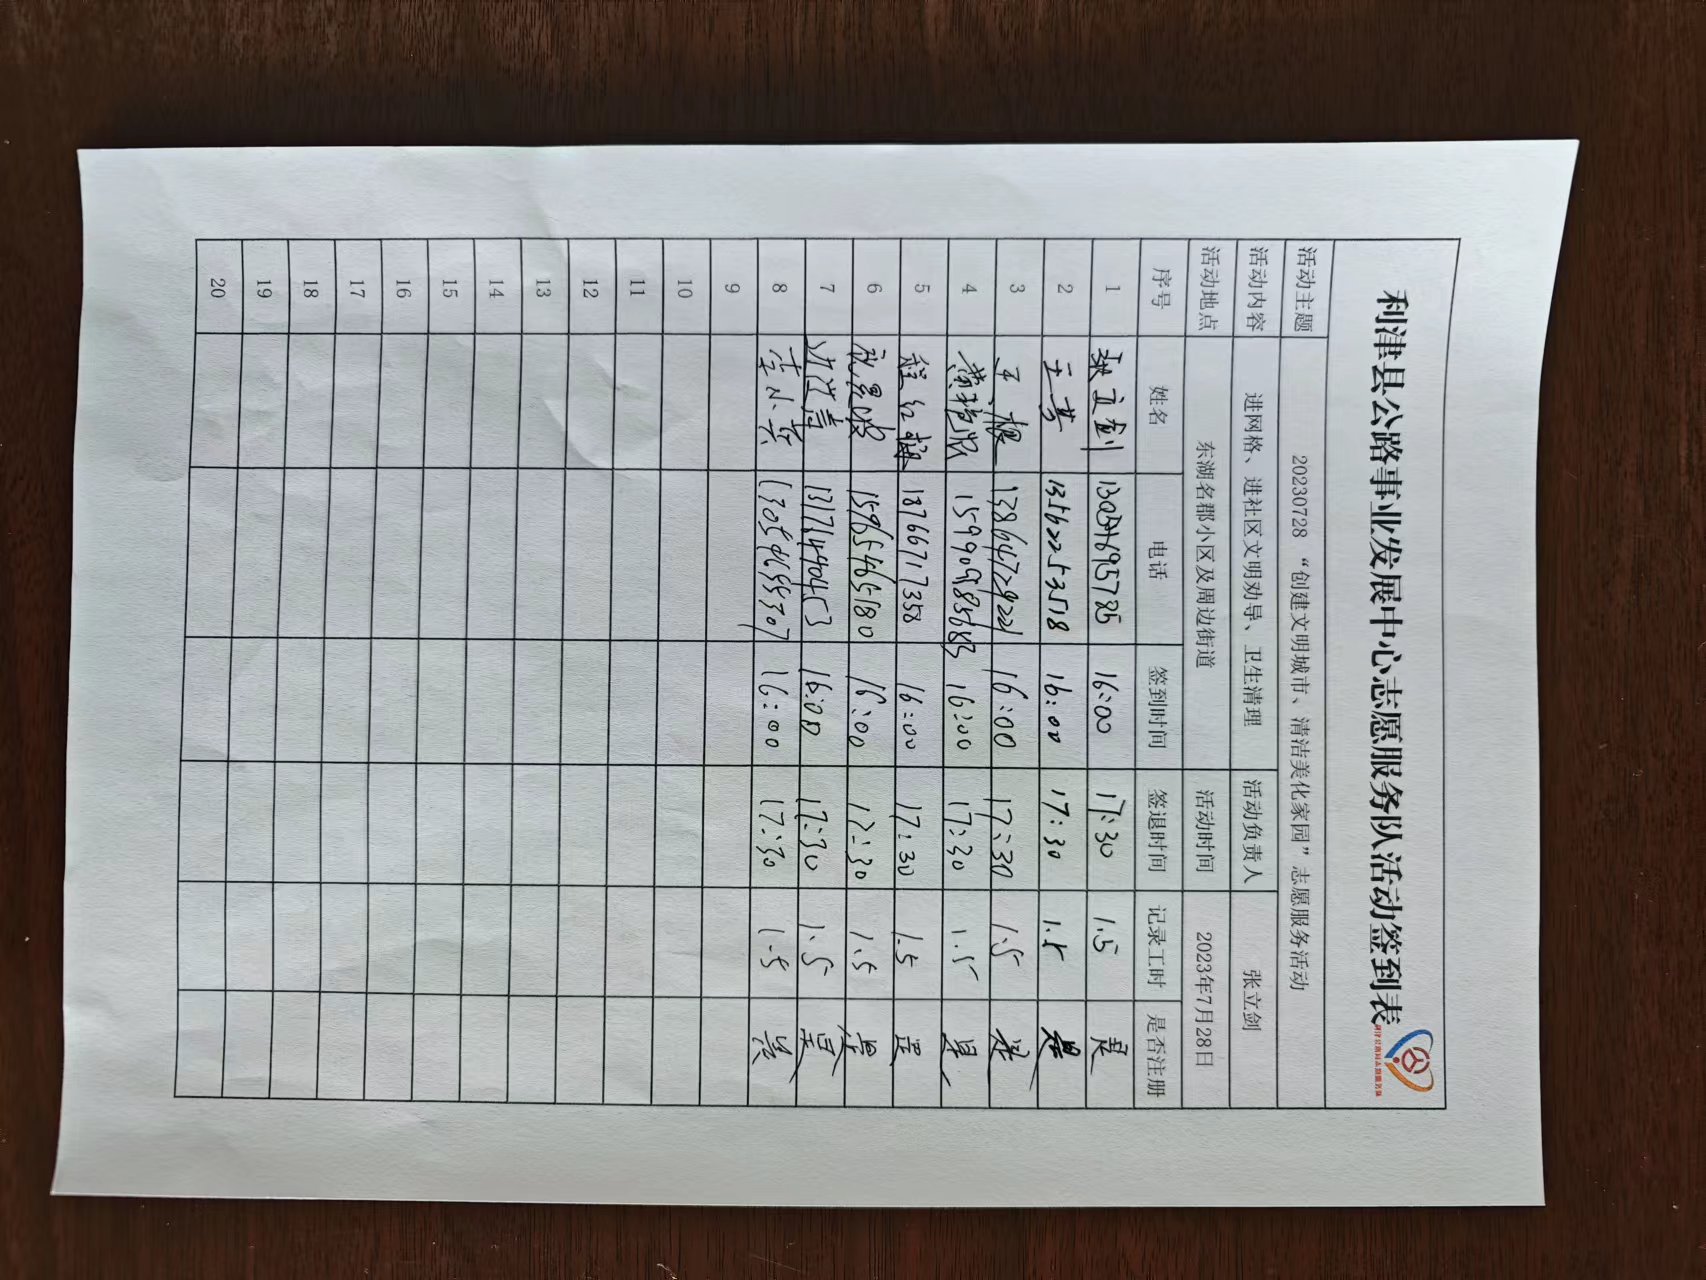 利津县公路事业发展中心志愿服务队活动签到表
活动主题 20230728 “创建文明城市、清洁美化家园”志愿服务活动
活动内容 进网格、进社区文明劝导、卫生清理 活动负责人 张立剑
活动地点 东湖名郡小区及周边街道 活动时间 2023年7月28日
序号 姓名 电话 签到时间 签退时间 记录工时 是否注册
1 张立剑 16:00 17:30 1.5 是
2 王芳 13562253518 16:00 17:30 1.5 是
3 王 13864729221 16:00 17:30 1.5 是
4 15990985683 16:00 17:30 1.5 是
5 程红 18766717358 16:00 17:30 1.5 是
6 15965465180 16:00 17:30 1.5 是
7 16:00 17:30 1.5 是
8 李小 16:00 17:30 1.5 是
9
10
11
12
13
14
15
16
17
18
19
20